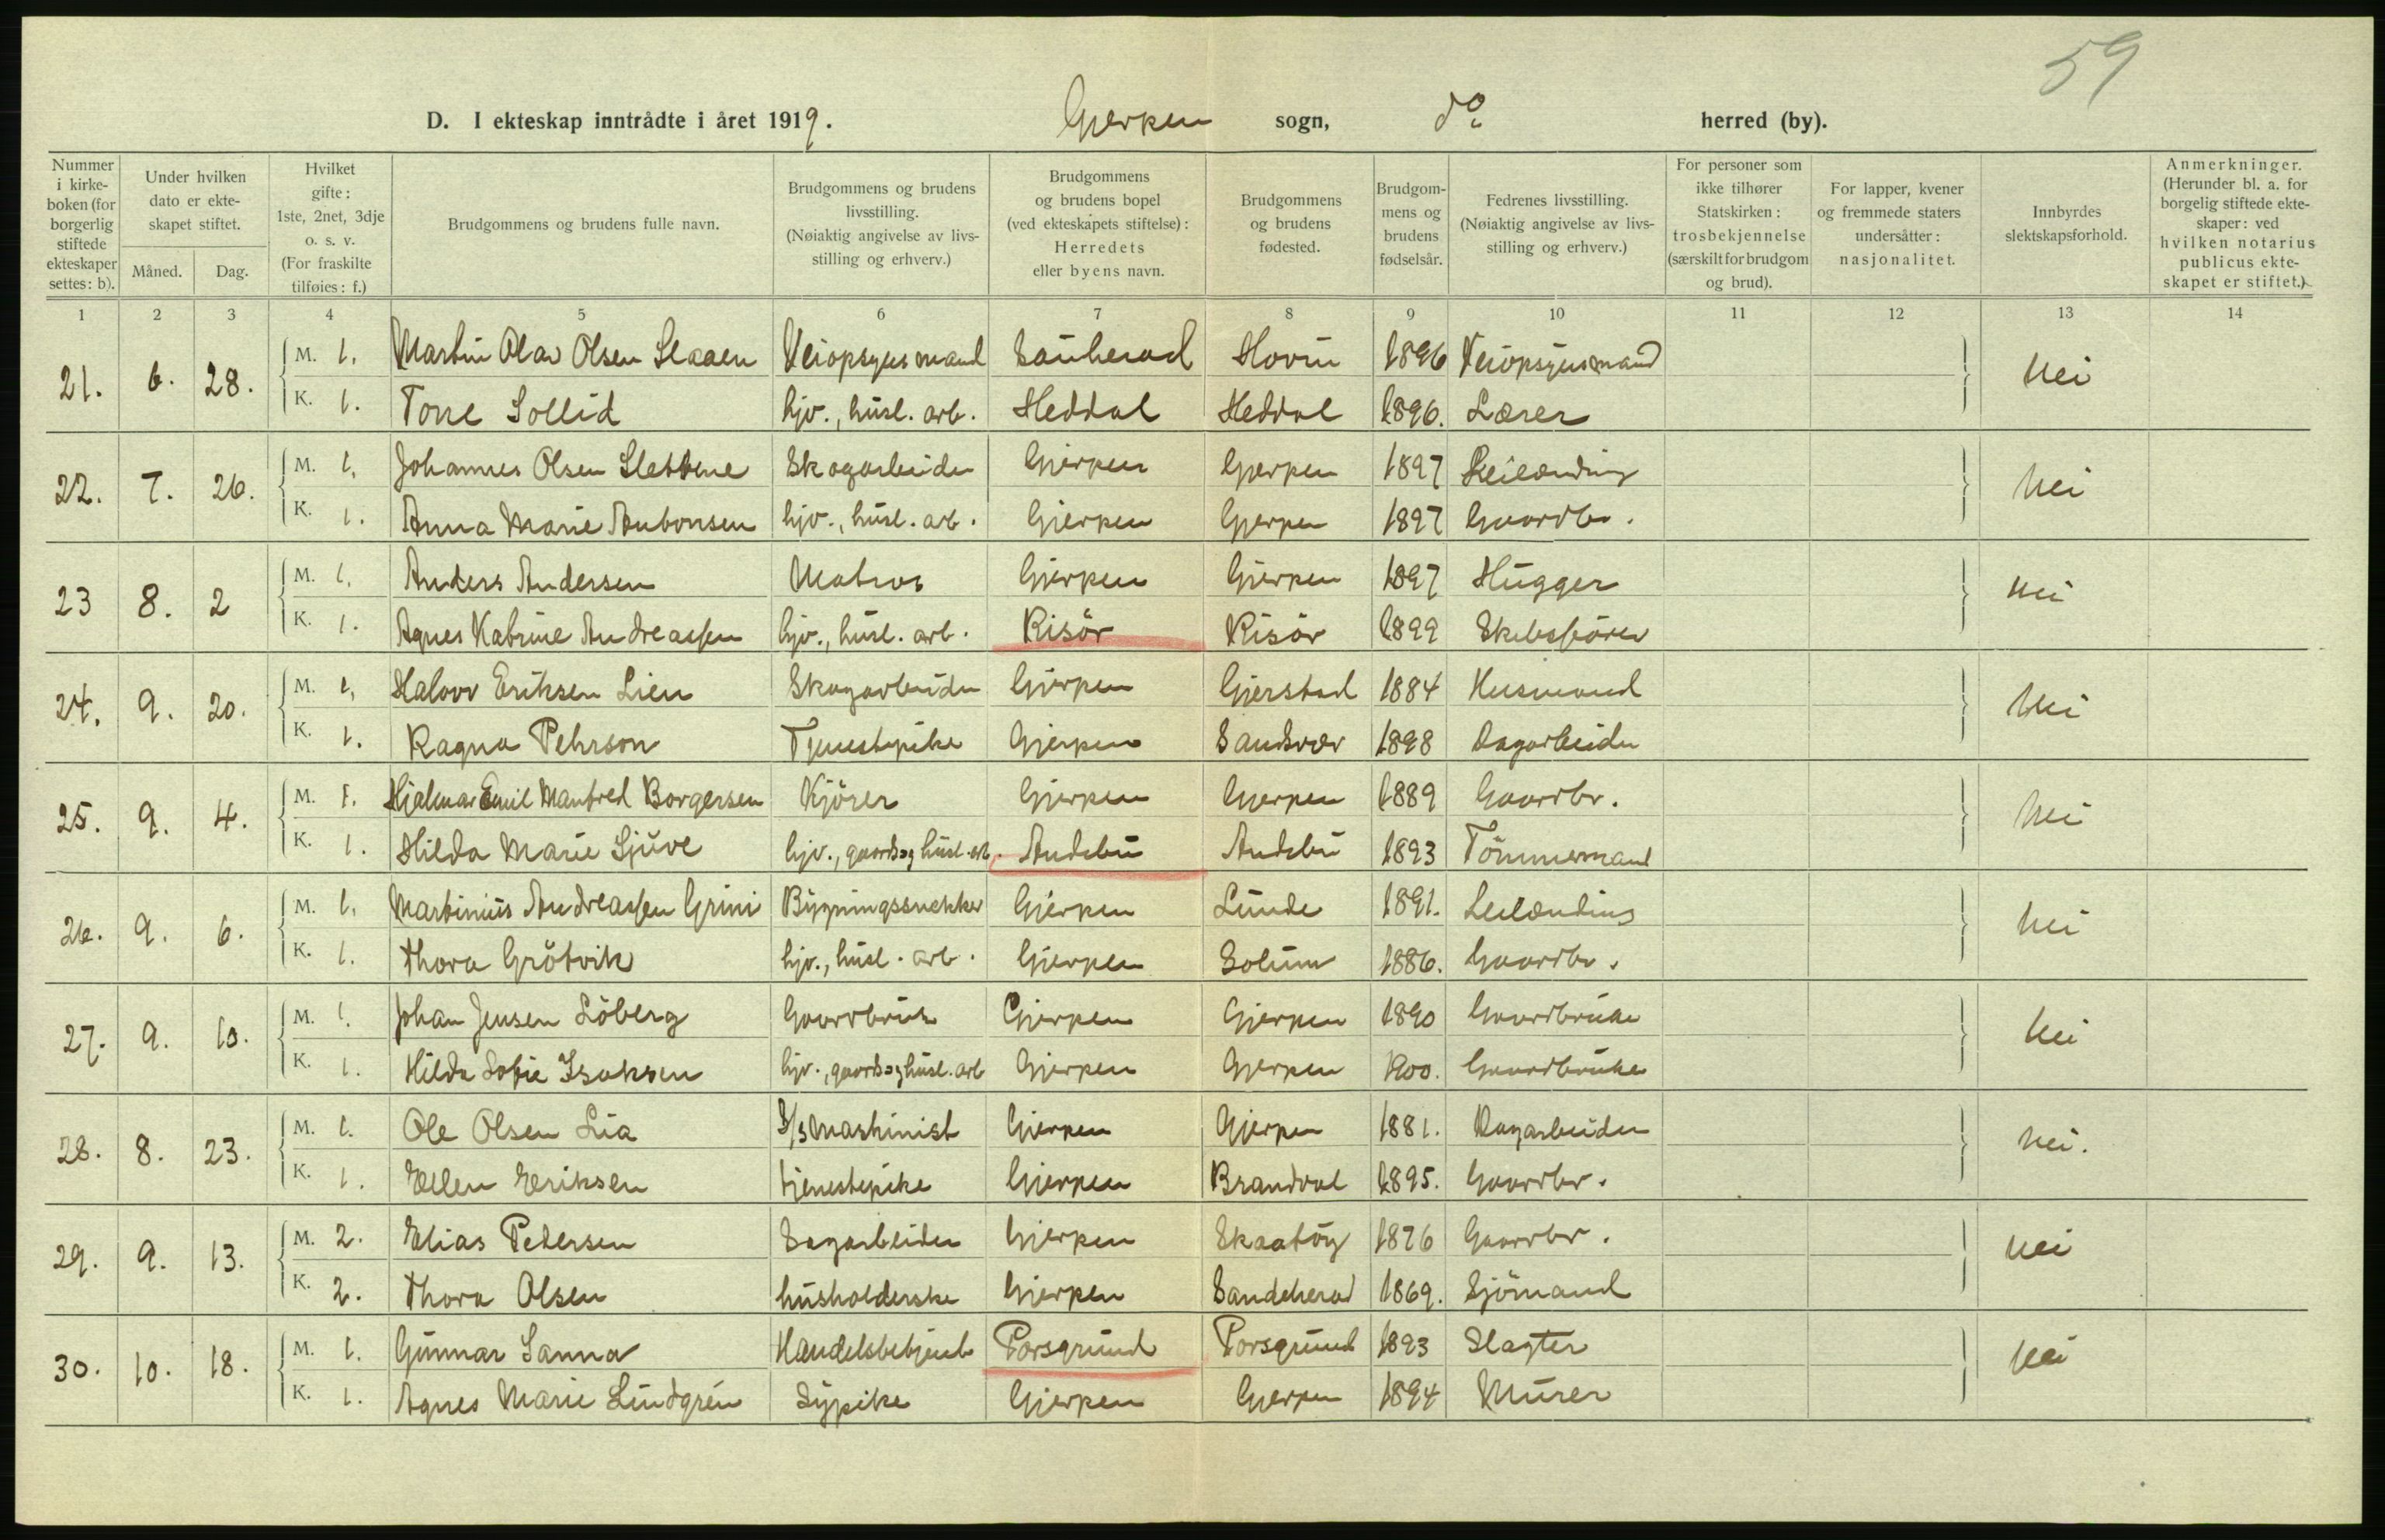 59
D. I ekteskap inntrådte i året 1919. Gjerpen sogn, do herred (by).
Nummer i kirkeboken (for borgerlig stiftede ekteskaper settes: b).
Under hvilken dato er ekteskapet stiftet.
Måned.
Dag.
Hvilket gifte: 1ste, 2net, 3dje o. s. v. (For fraskilte tilføies: f.)
Brudgommens og brudens fulle navn.
Brudgommens og brudens livsstilling. (Nøiaktig angivelse av livsstilling og erhverv.)
Brudgommens og brudens bopel (ved ekteskapets stiftelse): Herredets eller byens navn.
Brudgommens og brudens fødested.
Brudgommens og brudens fødselsår.
Fedrenes livsstilling. (Nøiaktig angivelse av livsstilling og erhverv.)
For personer som ikke tilhører Statskirken: trosbekjennelse (særskilt for brudgom og brud).
For lapper, kvener og fremmede staters undersåtter: nasjonalitet.
Innbyrdes slektskapsforhold.
Anmerkninger. (Herunder bl. a. for borgelig stiftede ekteskaper: ved hvilken notarius publicus ekteskapet er stiftet.)
1 2 3 4 5 6 7 8 9 10 11 12 13 14
21. 6. 28. M. 1. Martin Olav Olsen Slaaen Veiopsynsmand Sauherad Hovin 1896 Veiopsynsmand nei
K. 1. Tone Sollid hjv., husl. arb. Heddal Heddal 1896. Lærer
22. 7. 26. M. 1. Johannes Olsen Slettene Skogarbeider Gjerpen Gjerpen 1897 Leilænding nei
K. 1. Anna Marie Antonsen hjv., husl. arb. Gjerpen Gjerpen 1897 Gaardbr.
23 8. 2 M. 1. Anders Andersen Matros Gjerpen Gjerpen 1897 Hugger nei
K. 1. Agnes Katrine Andreassen hjv., husl. arb. Risör Risör 1899 Skibsförer
24. 9. 20. M. 1. Halvor Eriksen Lien Skogarbeider Gjerpen Gjerstad 1884 Husmand nei
K. 1. Ragna Pehrson Tjenestepike Gjerpen Sandsvær 1898 Dagarbeider
25. 9. 4. M. 1. Hjalmar Emil Manfred Borgersen Kjörer Gjerpen Gjerpen 1889 Gaardbr. nei
K. 1. Hilda Marie Sjuve hjv., gaards og husl. arb. Andebu Andebu 1893 Tömmermand
26. 9. 6. M. 1. Martinius Andreassen Grini Bygningssnekker Gjerpen Lunde 1891. Leilænding nei
K. 1. Thora Grötvik hjv., husl. arb. Gjerpen Solum 1886. Gaardbr.
27. 9. 10. M. 1. Johan Jensen Löberg Gaardbruk. Gjerpen Gjerpen 1890 Gaardbruker nei
K. 1. Hilda Sofie Isaksen hjv., gaards og husl. arb Gjerpen Gjerpen 1900. Gaardbruker
28. 8. 23. M. 1. Ole Olsen Lia S/S Maskinist Gjerpen Gjerpen 1881. Dagarbeider nei.
K. 1. Ellen Eriksen tjenestepike Gjerpen Brandval 1895. Gaardbr.
29. 9. 13. M. 2. Elias Petersen Sagarbeider Gjerpen Skaatöy 1876 Gaardbr. nei
K. 2. Thora Olsen husholderske Gjerpen Sandeherad 1869. Sjömand
30. 10. 18. M. 1. Gunnar Sanna Handelsbetjent Porsgrund Porsgrund 1893 Slagter nei
K. 1. Agnes Marie Lundgrén Sypike Gjerpen Gjerpen 1894 Murer